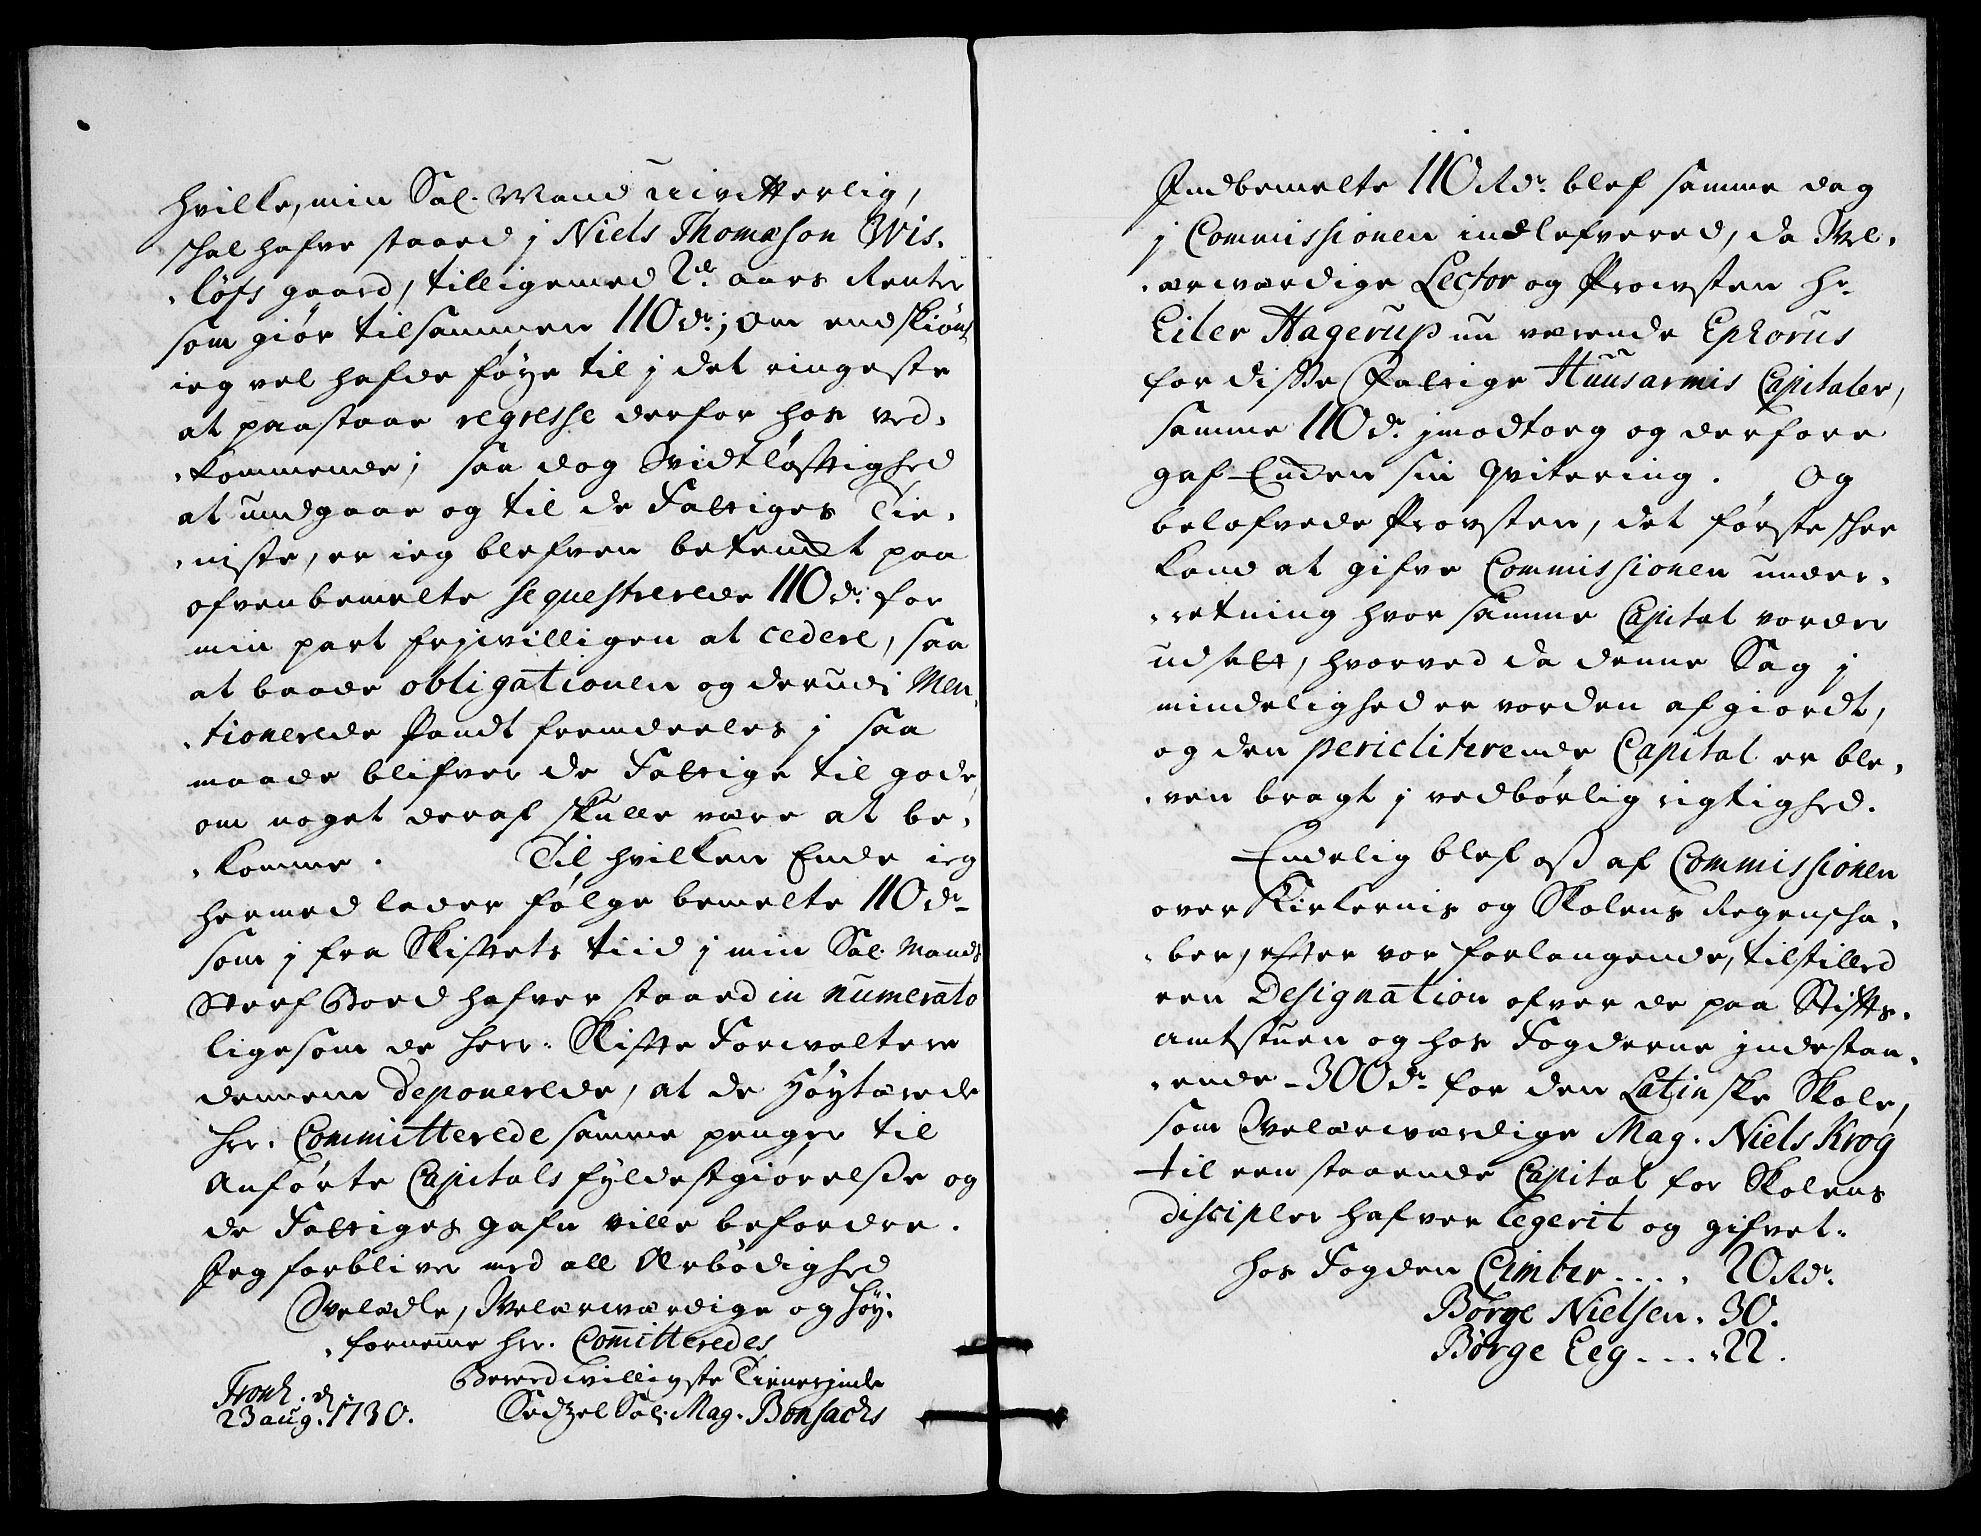 hville, min Sal. Mand uvitterlig,
schal hafve staaed j Niels Thomæson Wis-
-löfs gaard, tilligemed 2de aars Renter
som giör tilsammen 110 dr; Om endskiönt
ieg vel hafde föye til j det ringeste
at paastaae regresse derfor hos ved-
-kommende; saa dog Vidtløfftighed
at undgaae og til de Fattiges Tie-
-niste, er ieg blefven betenckt paa
ofvenbemelte sequestrerede 110 dr for
min part frjvilligen at cedere, saa
at baade obligationen og derudi Men-
-tionerede Pandt fremdeeles j saa
maade blifver de Fattige til gode,
om noget deraf skulle være at be-
-komme. Til hvilken Ende ieg
hermed lader følge bemelte 110 dr
som j fra Skifftets tiid j min Sal: Mands
Sterf Boed hafver staaed in numerato
ligesom de Herr: Skiffte Forvaltere
dennem deponerede, at de Höytærede
Hrr. Committerede samme penger til
Anförte Capitals fyldestgiörelse og
de Fattiges gafn ville befordre.
Jeg forbliver med all Ærbödighed
Velædle, Velærværdige og Höy-
-forneme Hrr. Comitteredes
Beredvilligste Tienerinde
Tronh. d.
23 aug. 1730. Sedzel Sal: Mag. Bonsachs
Indbemelte 110 Rdr. blef samme dag
j Commissionen indlefvered, da Vel-
-ærværdige Lector og Provsten Hr.
Eiler Hagerup nu værende Ephorus
for disse Fattige Huusarmis Capitaler,
samme 110 dr. jmodtog og derfore
gaf Enden sin qvitering. Og
belofvede Provsten, det förste schee
kand at gifve Commissionen under-
-retning hvor samme Capital vorder
udsatt, hvorved da denne Sag j
mindelighed er vorden afgiordt,
og den pericliterende Capital er ble-
-ven bragt j vedbörlig rigtighed.
Endelig blef oss af Commissionen
over Kirkernis og Skolens Regenscha-
-ber, effter vor forlangende, tilstilled
een Designation ofver de paa Stiffts-
amtstuen og hos Fogderne jndestaa-
-ende 300 dr for den Latinske Skole,
som Velærværdige Mag. Niels Krog
til een staaende Capital for Skolens
discipler hafver legerit og gifvet.
hos Fogden Cimber .... 20 Rdr.
Börge Nielsen. 30.
Börge Eeg .... 22.